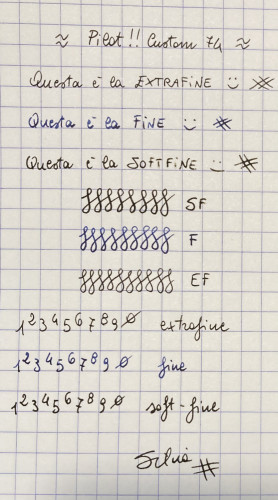 ≈ Pilot!! Custom 74 ≈
Questa è la EXTRAFINE :) #
Questa è la FINE :) #
Questa è la SOFTFINE :) #
SF
F
EF
1234567890 extrafine
1234567890 fine
1234567890 soft-fine
Silvia #